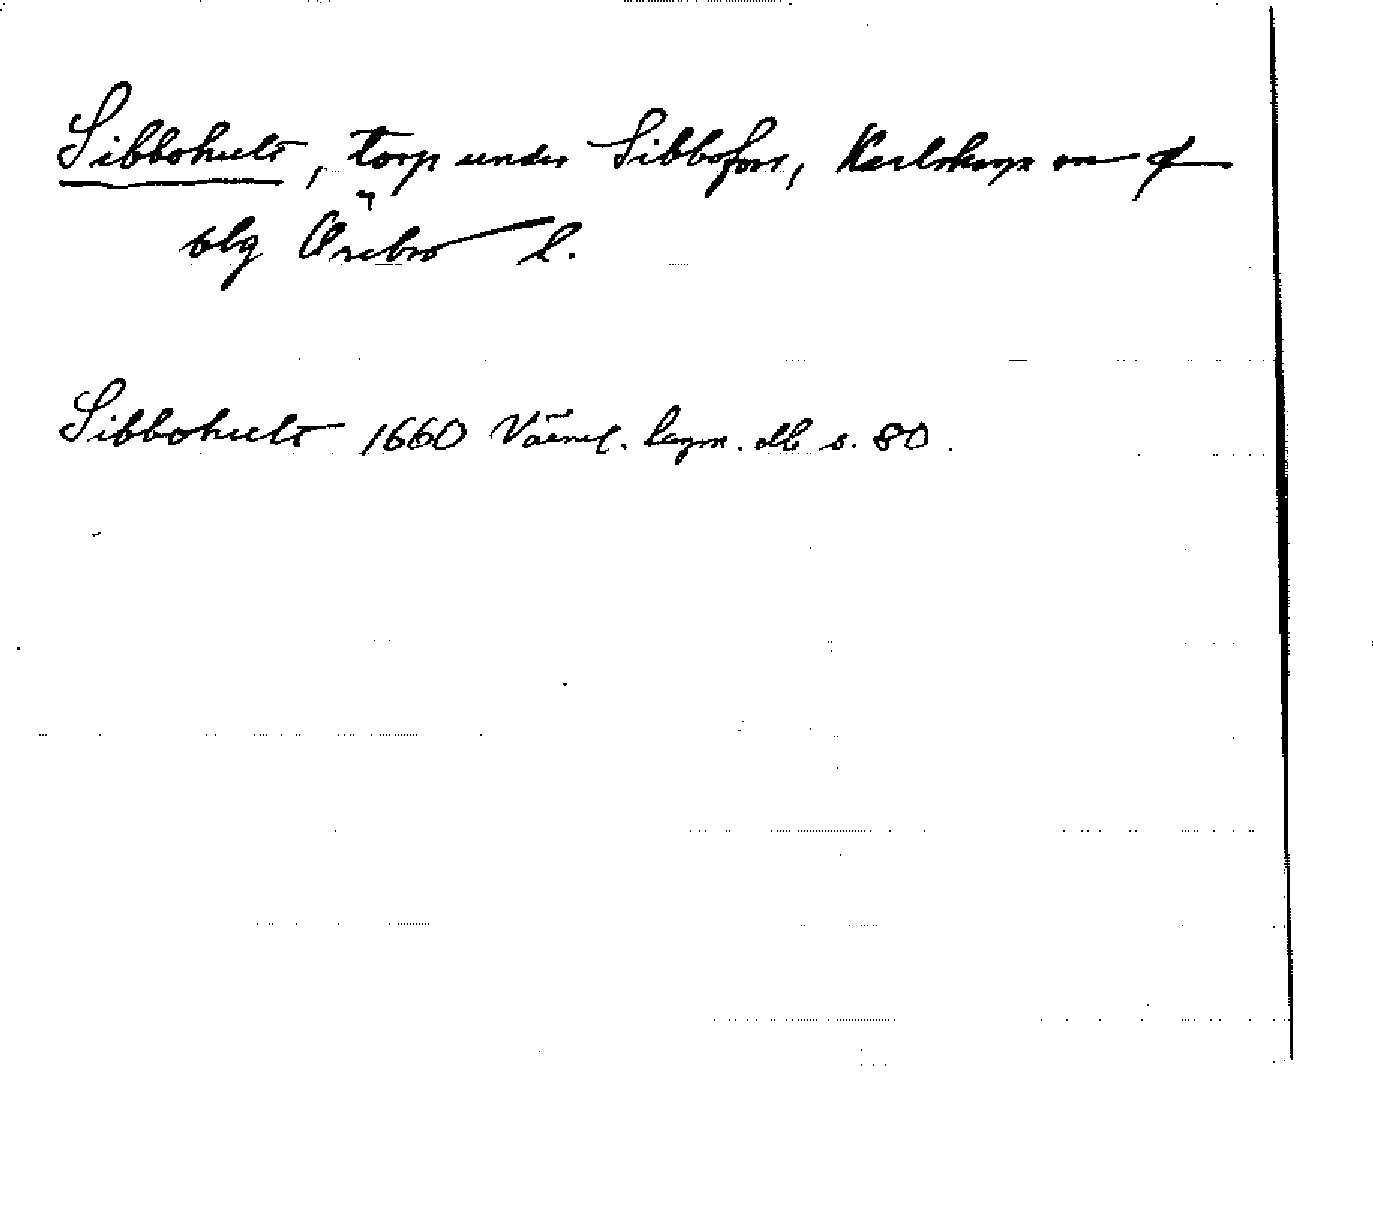 Sibbohult, torp under Sibbofors, Karlskoga sn o
blg Örebro l.
Sibbohult 1660 Värml. lagm. db s. 80.